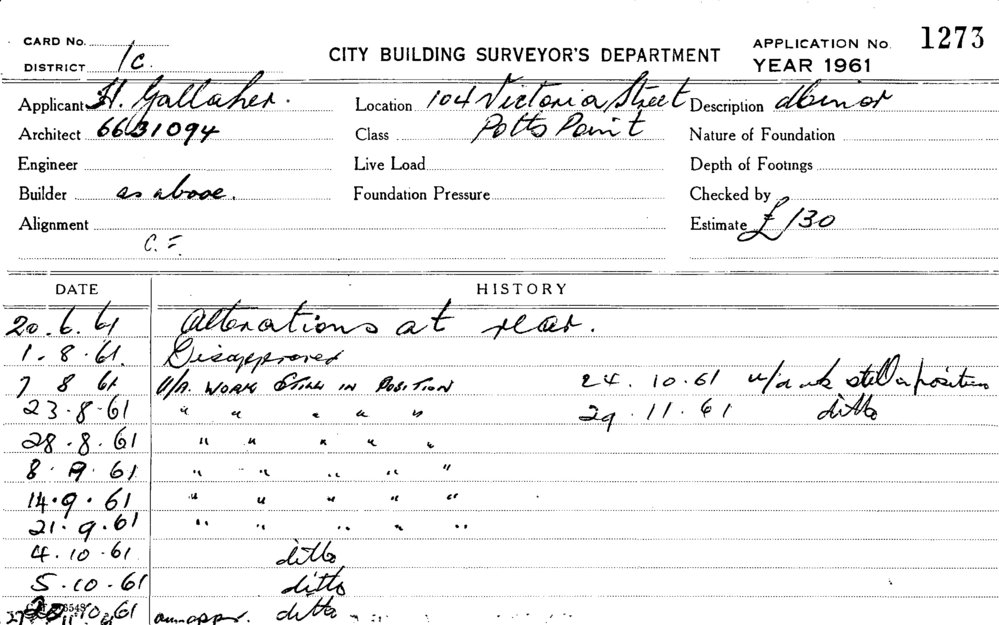 CARD No. CITY BUILDING SURVEYOR'S DEPARTMENT APPLICATION No. 1273
DISTRICT 1c. YEAR 1961
Applicant H. Gallaher. Location 104 Victoria Street Description
Architect 6631094 Class Potts Point Nature of Foundation
Engineer Live Load Depth of Footings
Builder as above. Foundation Pressure Checked by
Alignment Estimate £130
C.F.
DATE HISTORY
20.6.61 Alterations at rear.
1.8.61. Disapproved
7 8 61 U/A. WORK STILL IN POSITION 24.10.61 u/a wk still in position
23.8.61 " " " " " 29.11.61 ditto
28.8.61 " " " " "
8.9.61 " " " " "
14.9.61 " " " " "
21.9.61 " " " " "
4.10.61 ditto
5.10.61 ditto
10.61 ditto